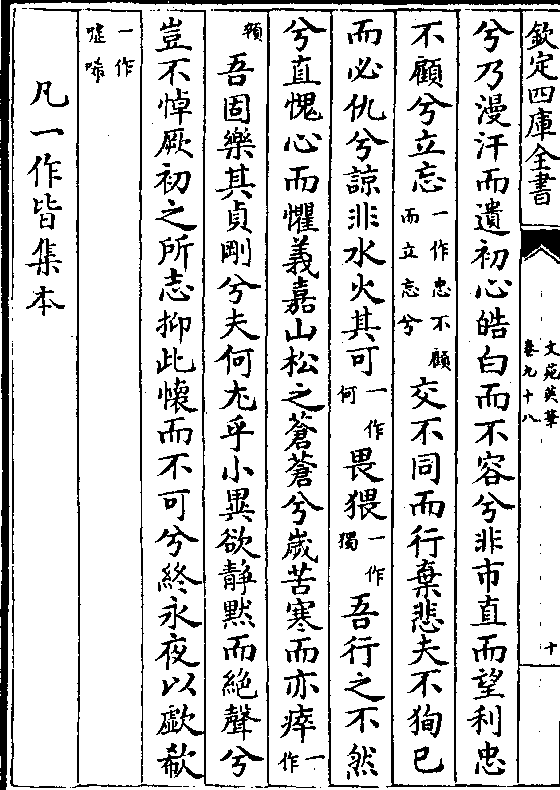 欽定四庫全書
文苑英華
卷九十八
十
兮乃漫汗而遺初心皓白而不容兮非市直而望利忠
不顧兮立忘一作忠不顧而立忘兮交不同而行棄悲夫不狥已
而必仇兮諒非水火其可一作何畏猥一作獨吾行之不然
兮直愧心而懼義嘉山松之蒼蒼兮歲苦寒而亦瘁一作
顇吾固樂其貞剛兮夫何尤乎小異欲静黙而絶聲兮
豈不悼厥初之所志抑此懷而不可兮終永夜以歔欷
一作噓唏
凡一作皆集本